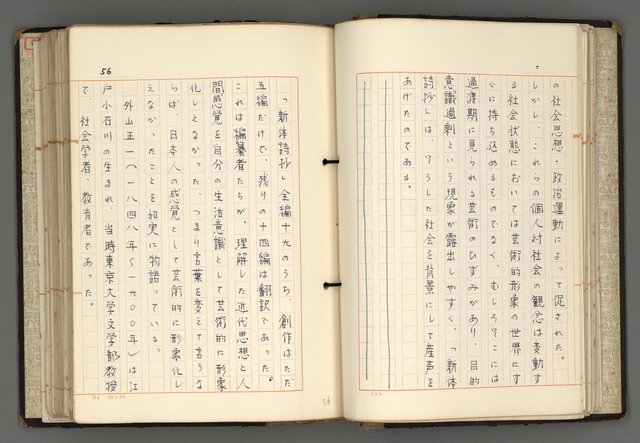 の社会思想・政治運動によって促された。
しかし、これらの個人対社会の観念は変動す
る社会状態においては芸術的形象の世界にす
ぐに持ち込めるものでなく、むしろそこには
過渡期に見られる芸術のひずみがあり、目的
意識過剰という現象が露出しやすく、「新体
詩抄」は、そうした社会を背景にして産声を
あげたのである。
56
「新体詩抄」全編十九のうち、創作はただ
五編だけで、残りの十四編は翻訳であった。
これは編纂者たちが、理解した近代思想と人
間感覚を自分の生活意識として芸術的に形象
化しえなかった、つまり言葉を変えて言うな
らば、日本人の感覚として芸術的に形象化し
えなかったことを如実に物語っている。
外山正一（一八四八年～一九〇〇年）は江
戸小石川の生まれ、当時東京大学文学部教授
で、社会学者、教育者であった。
56